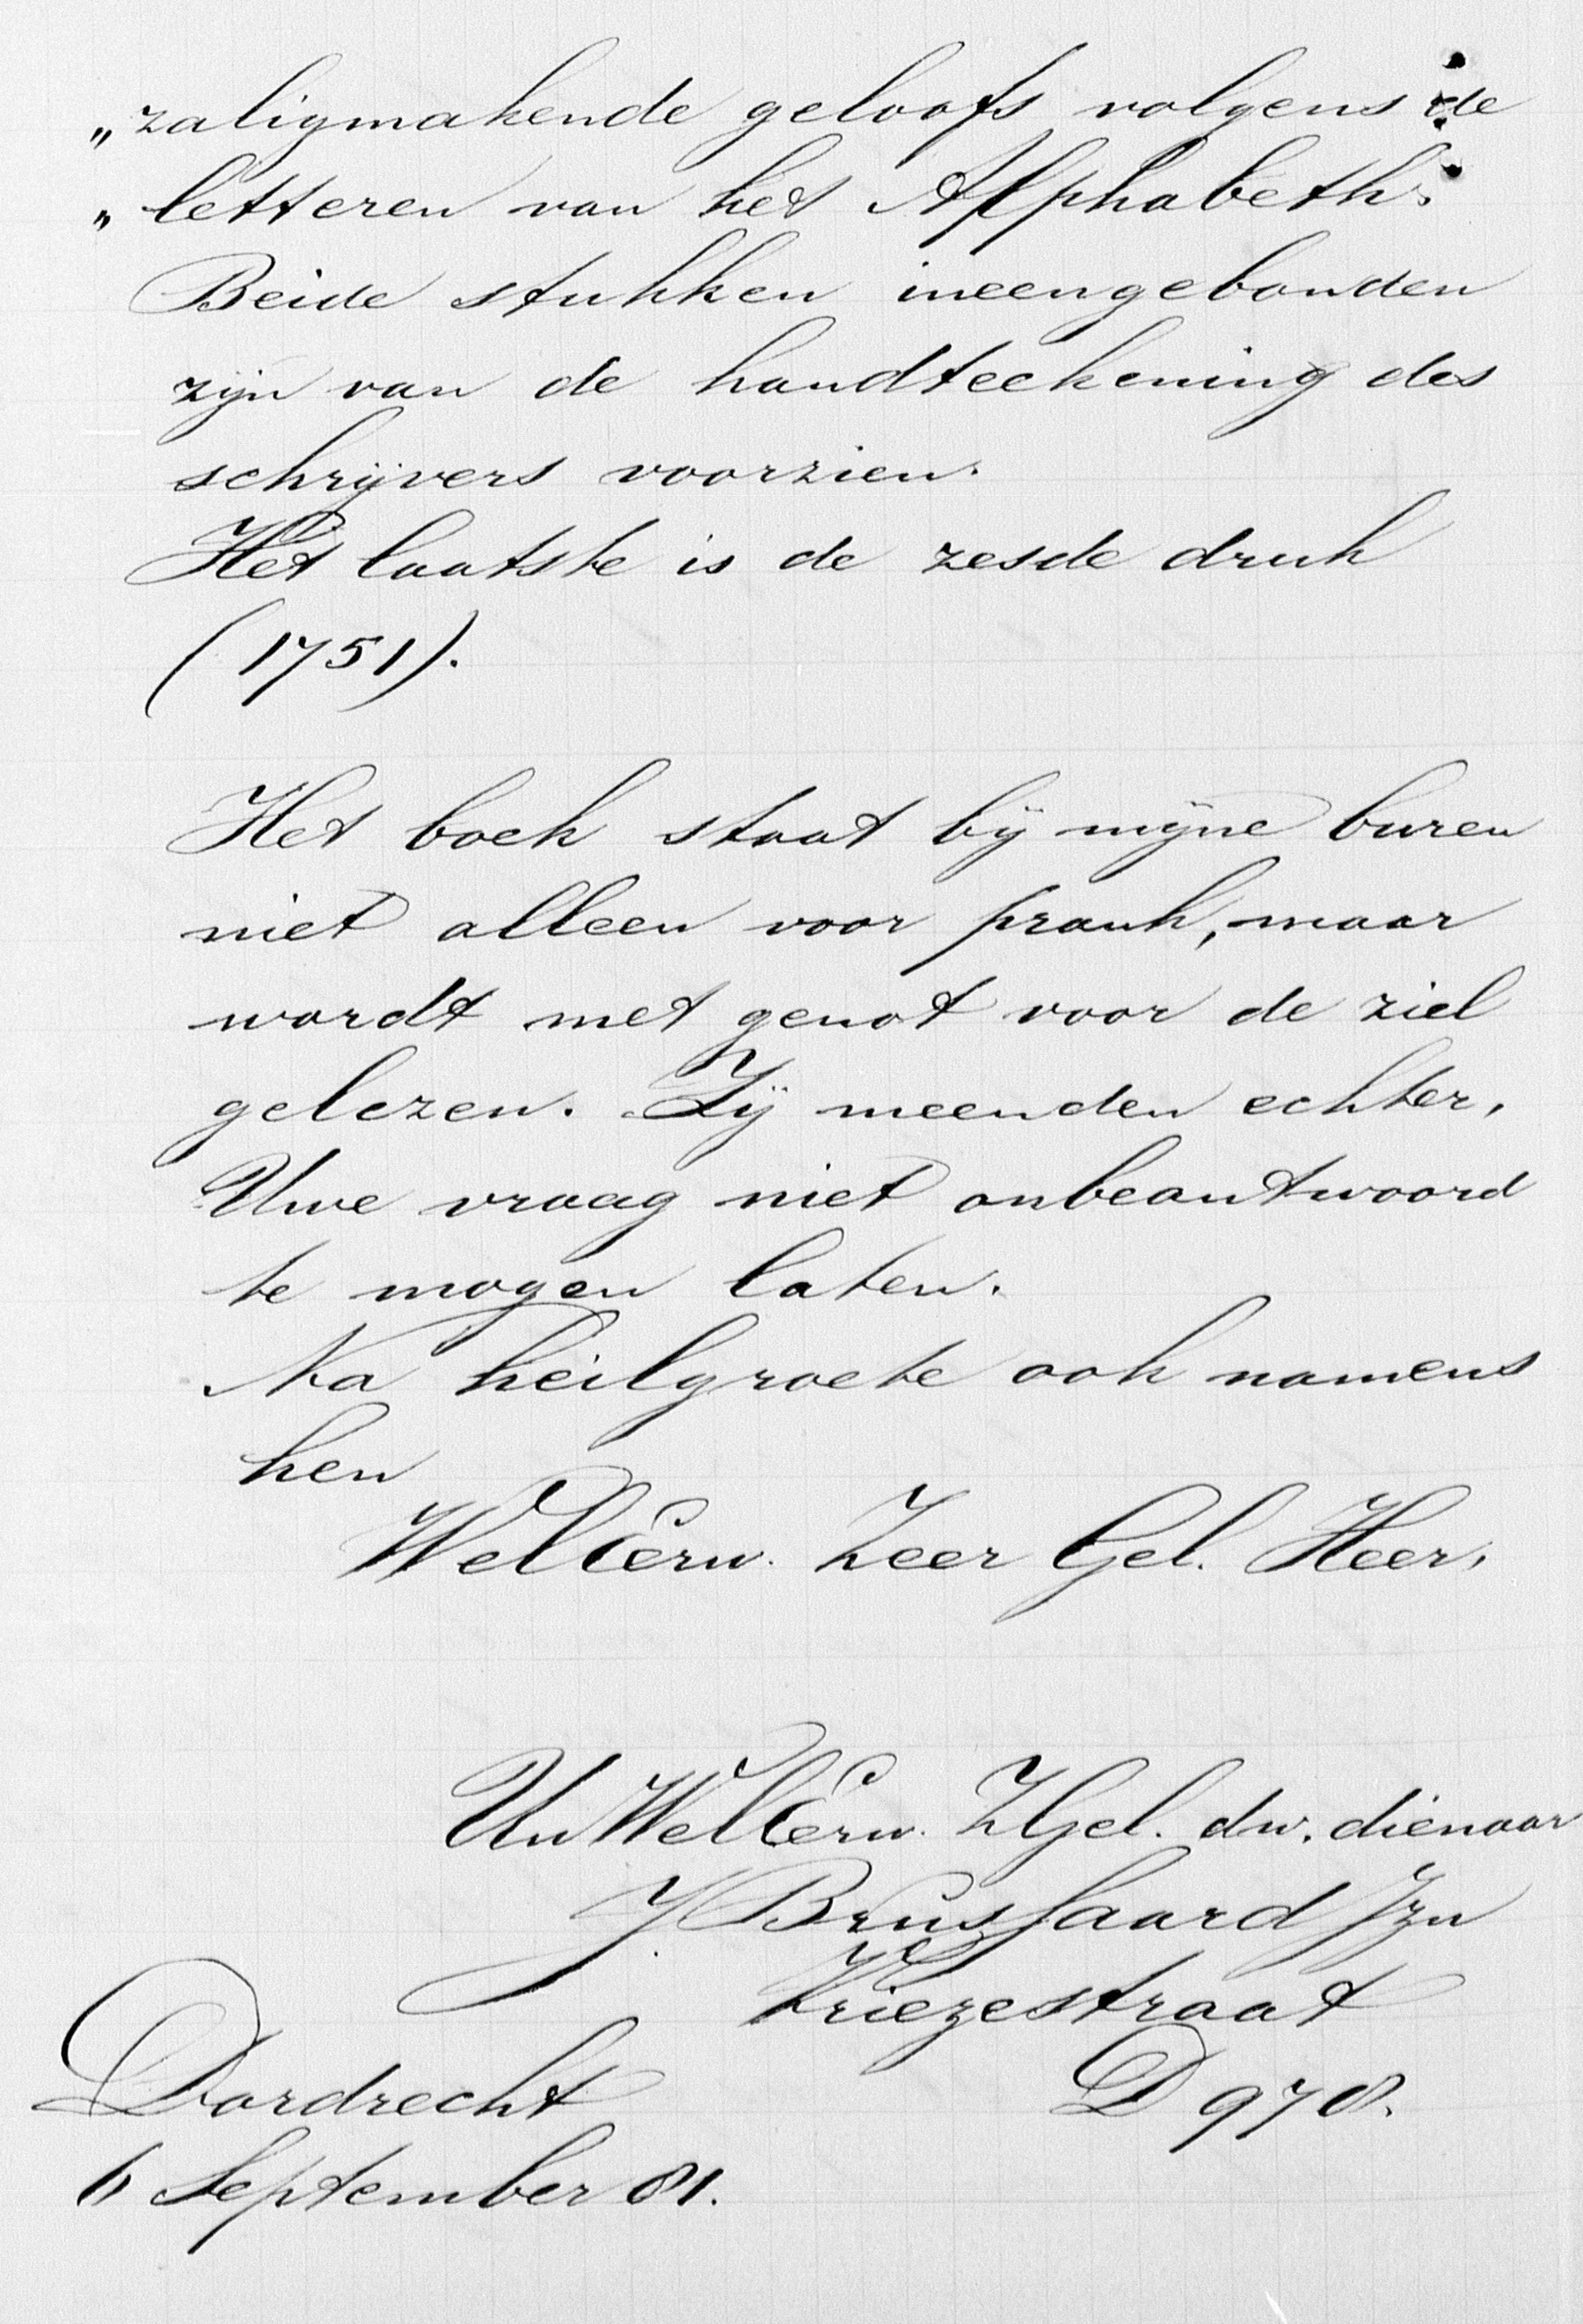 „zaligmakende geloofs volgens de
„letteren van het Alphabeth."
Beide stukken ineengebonden
zijn van de handteekening des
schrijvers voorzien.
Het laatste is de zesde druk
(1751).
Het boek staat bij mijne buren
niet alleen voor pronk, maar
wordt met genot voor de ziel
gelezen. Zij meenden echter,
Uwe vraag niet onbeantwoord
te mogen laten.
Na heilgroete ook namens
hen
WelEerw. Zeer Gel. Heer,
Uw WelEerw. ZGel. dw. dienaar
J Brusfaard Jzn
Vriezestraat
Dordrecht D 978.
6 September 81.